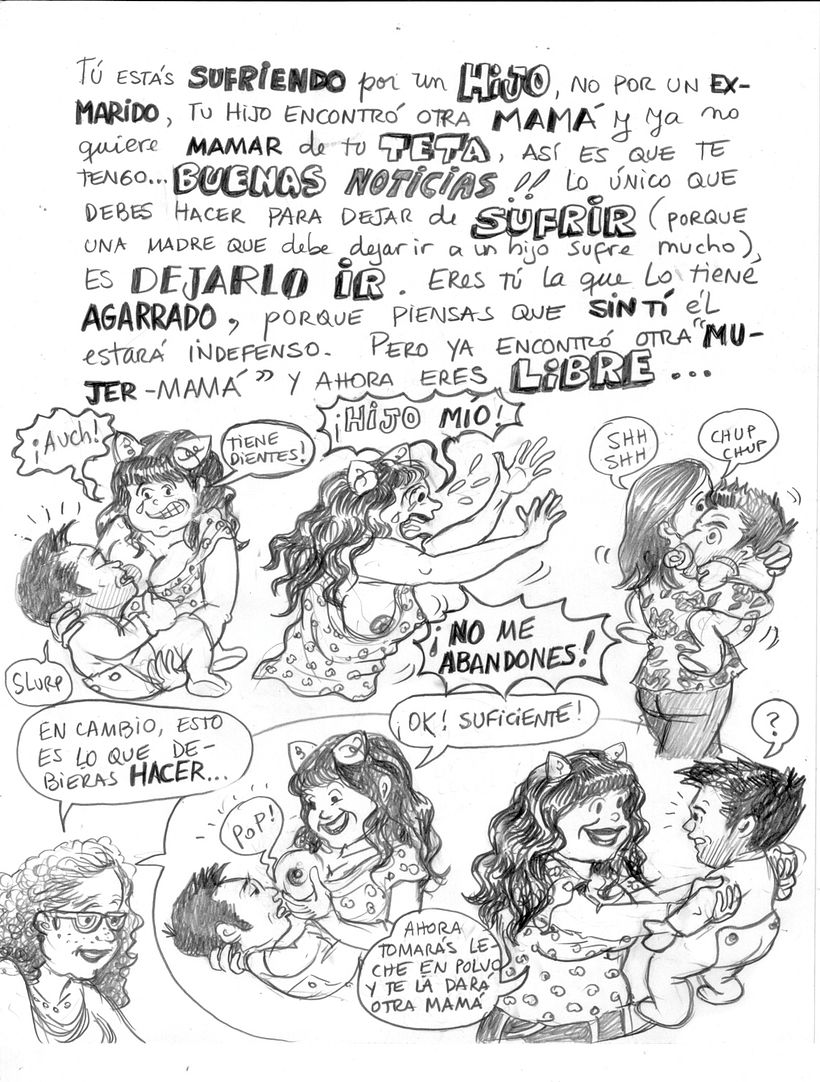 TÚ ESTÁS SUFRIENDO por un HIJO, NO POR UN EX-
MARIDO, TU HIJO ENCONTRÓ OTRA MAMÁ y ya no
quiere MAMAR de tu TETA, ASÍ ES QUE TE
TENGO... BUENAS NOTICIAS!! LO ÚNICO QUE
DEBES HACER PARA DEJAR de SUFRIR (PORQUE
UNA MADRE QUE debe dejar ir a un hijo sufre mucho),
ES DEJARLO IR. ERES TÚ la que LO tiene
AGARRADO, PORQUE PIENSAS QUE SIN TÍ éL
estará INDEFENSO. PERO YA ENCONTRÓ OTRA "MU-
JER-MAMÁ" Y AHORA ERES LIBRE...
¡AUCH!
TIENE
DIENTES!
SLURP
¡HIJO MÍO!
¡NO ME
ABANDONES!
SHH
SHH
CHUP
CHUP
EN CAMBIO, ESTO
ES LO QUE DE-
BIERAS HACER...
¡OK! SUFICIENTE!
POP!
?
AHORA
TOMARÁS LE-
CHE EN POLVO
Y TE LA DARÁ
OTRA MAMÁ